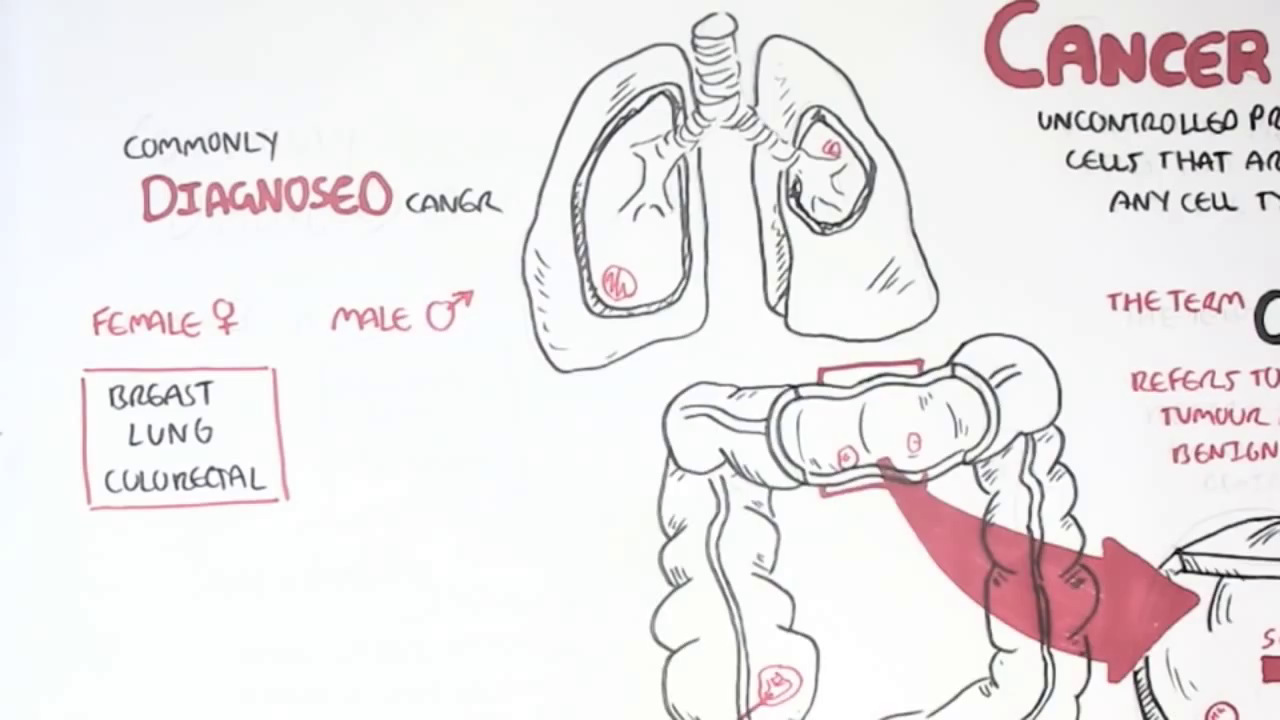 COMMONLY
DIAGNOSED CANER
FEMALE ♀ MALE ♂
BREAST
LUNG
COLORECTAL
CANCER
UNCONTROLLED PR
CELLS THAT AR
ANY CELL TY
THE TERM C
REFERS TO
TUMOUR
BENIGN
S